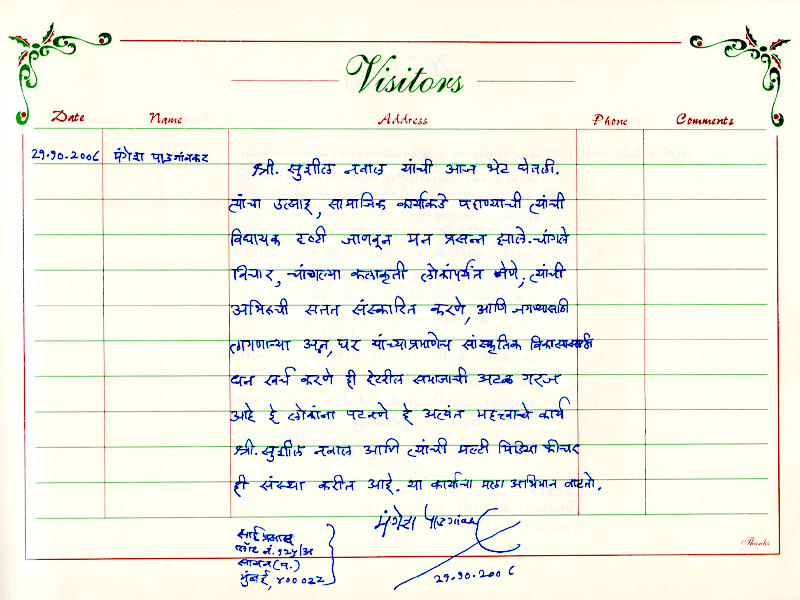 Visitors
Date Name Address Phone Comments
२९.१०.२००६ मंगेश पाडगांवकर
श्री. सुशील नवाल यांची आज भेट घेतली.
त्यांचा उत्साह, सामाजिक कार्याकडे पहाण्याची त्यांची
विधायक दृष्टी जाणवून मन प्रसन्न झाले. चांगले
विचार, चांगल्या कलाकृती लोकांपर्यंत नेणे, त्यांची
अभिरूची सतत संस्कारित करणे, आणि जगण्यासाठी
लागणाऱ्या अन्न, घर यांच्याप्रमाणेच सांस्कृतिक विकासासाठी
धन खर्च करणे ही समाजाची अटळ गरज
आहे हे लोकांना पटवणे हे अत्यंत महत्त्वाचे कार्य
श्री. सुशील नवाल आणि त्यांची मल्टी मिडिया फीचर
ही संस्था करीत आहे. या कार्याचा मला अभिमान वाटतो.
मंगेश पाडगांवकर
२९.१०.२००६
साई प्रसाद
प्लॉट नं. १२५/अ
सायन (प.)
मुंबई, ४०० ०२२
Thanks